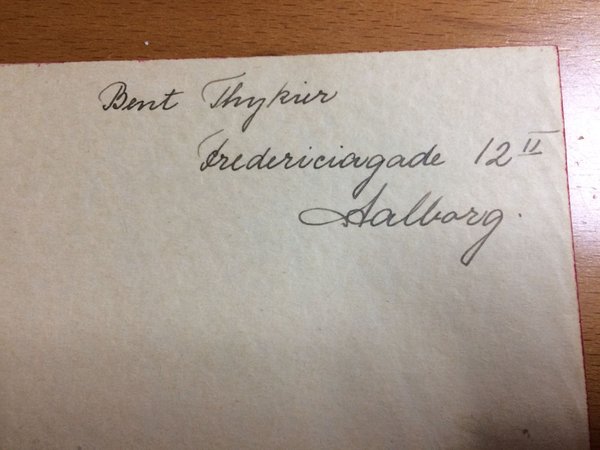 Bent Thykier
Fredericiagade 12 II
Aalborg.